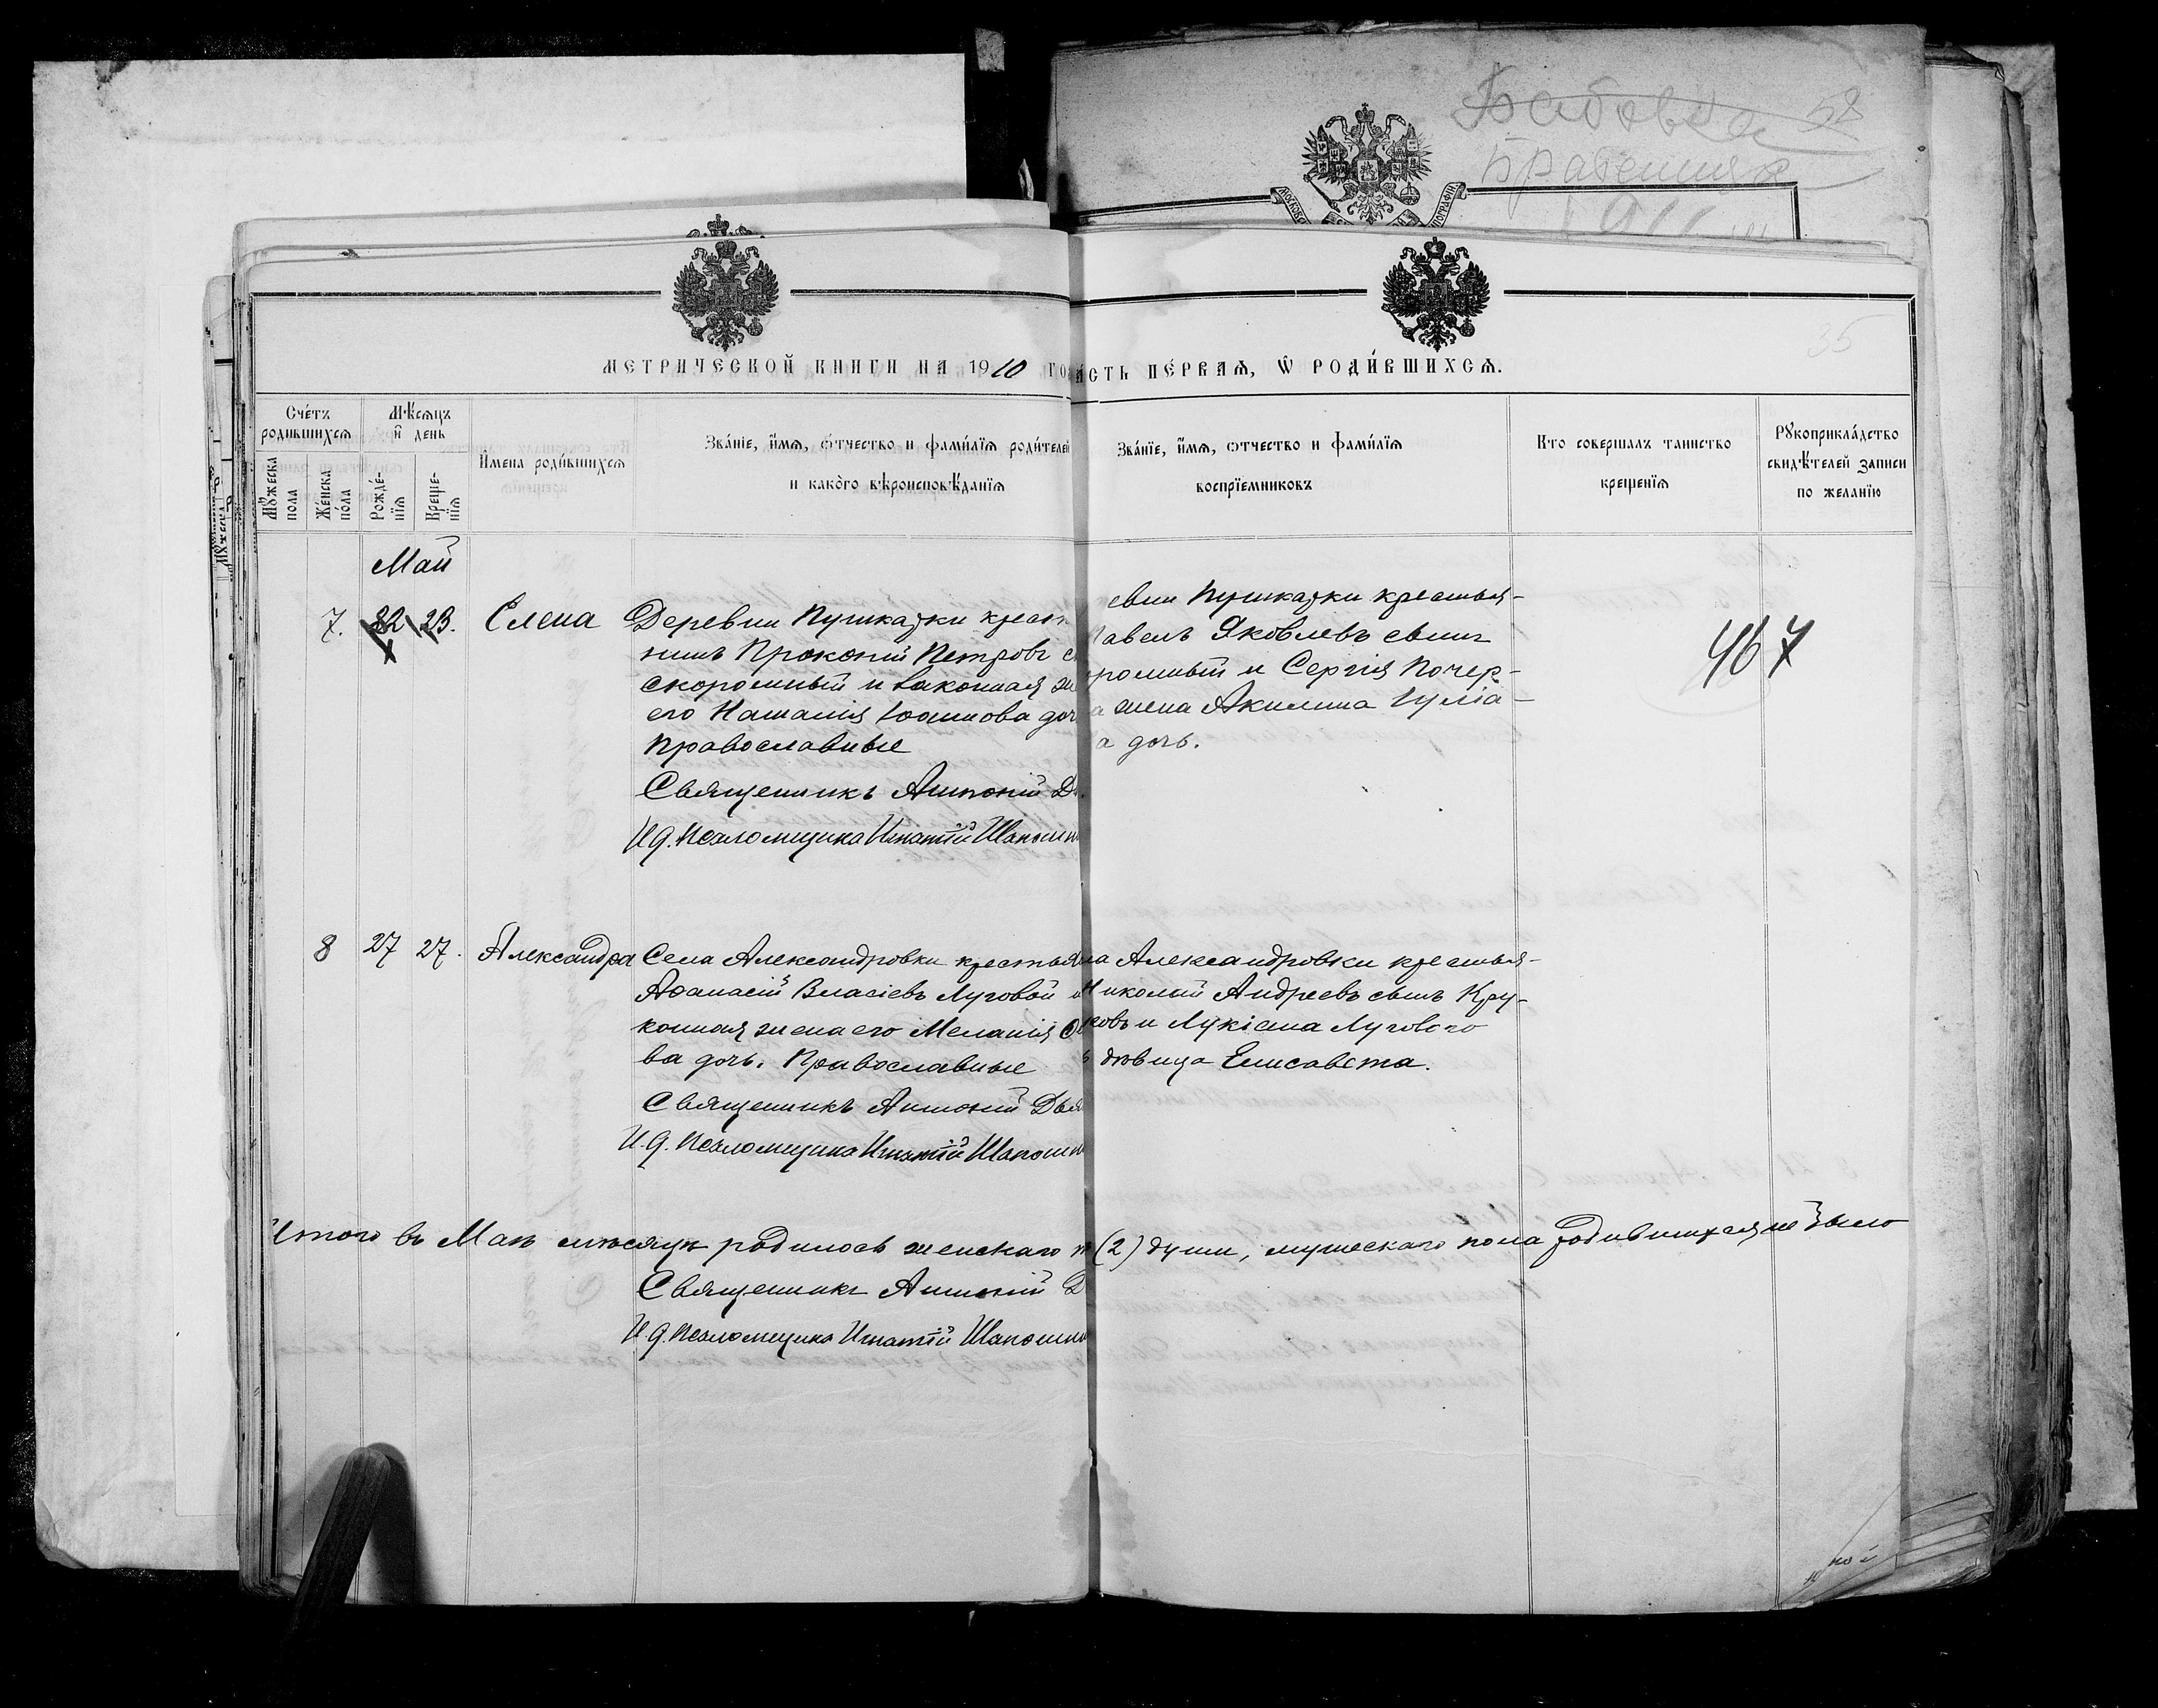 Бабовка 58
1911
35
МЕТРИЧЕСКОЙ КНИГИ НА 1910 ГО
АСТЬ ПЕ́РВАѦ, Ѡ҆ РОДИ́ВШИХСѦ.
Сче́тъ родившихсѧ
Мѣ́сѧцъ и҆ день
И҆мена роди́вшихсѧ
Зва́нїе, и҆́мѧ, ѻ҆́тчество и фами́лїѧ роди́телей
и како́гѡ вѣроисповѣ́данїѧ
Зва́нїе, и҆́мѧ, ѻтчество и фами́лїѧ
воспрїемниковъ
Кто совершалъ таинство
крещенїѧ
Рꙋкоприкла́дство
свидѣ́телей записи
по желанїю
Мꙋжеска пола
Же́нска по́ла
Рожде́нїѧ
Креще́нїѧ
Май
7. 22 23. Елена
Деревни Пушкарки крест
нинъ Прокопій Петровъ с
скоромный и законная же
его Наталія Іоаннова доч
Православные
Священникъ Антоній Д
И.д. Псаломщика Игнатій Шапошн
евни Пушкарки крестья-
Павелъ Яковлевъ сынъ
ромный и Сергія Почер-
а жена Акилина Іуліа-
а дочь.
467
8 27 27. Александра
Села Александровки крестьян
Аѳанасій Власіевъ Луговой и
конная жена его Меланія
ва дочь. Православные
Священникъ Антоній Дья
И.д. Псаломщика Игнатій Шапошн
ла Александровки крестья-
Николай Андреевъ сынъ Кру-
ковъ и Лукіана Лугового
ь дѣвица Елисавета.
Итого въ Маѣ мѣсяцѣ родилось женскаго п (2) души, мужескаго пола родившихся не было
Священникъ Антоній Д
И.д. Псаломщика Игнатій Шапошн